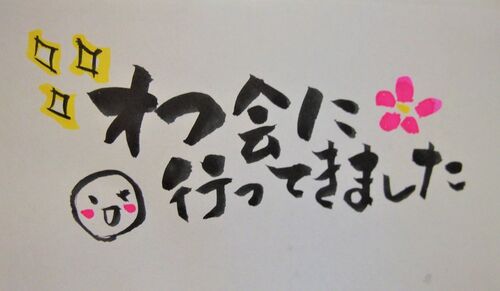 オフ会に
行ってきました